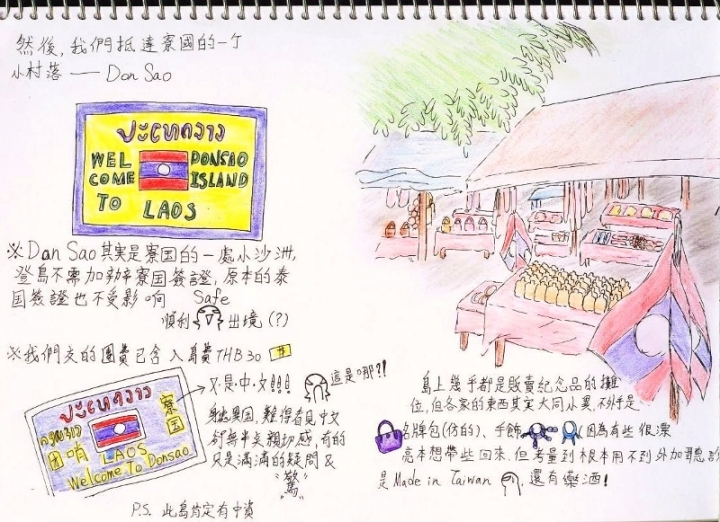 然後,我們抵達寮國的一個
小村落 —— Don Sao
ປະເທດລາວ
WEL DONSAO
COME ISLAND
TO LAOS
※Dan Sao其實是寮国的一處小沙洲,
登島不需加辦寮国簽證,原本的泰
国簽證也不受影响 Safe
順利 出境(?)
※我們交的團費已含入島費THB30
ປະເທດລາວ
寮國
LAOS
Welcome To Donsao
又·是·中·文!!!
這是哪?!
身處異国,難得看見中文
卻無半支親切感,有的
只是滿滿的疑問&
"驚"
P.S. 此島肯定有中資
島上幾乎都是販賣紀念品的攤
位,但各家的東西其實大同小異,不外乎是
名牌包(仿的)、手飾 (因為有些很漂
亮本想帶些回來,但考量到根本用不到外加聽說
是Made in Taiwan 還有藥酒!